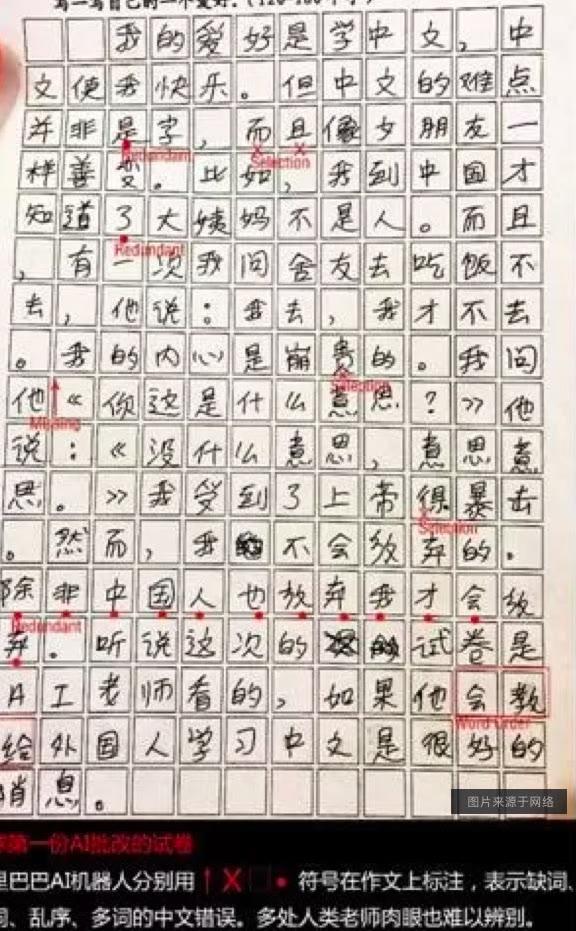 写一写自己的一个爱好.(120-160个字)
我的爱好是学中文,中
文使我快乐。但中文的难点
并非是字,而且像女朋友一
Redundant Selection
样善变。比如,我到中国才
知道了大姨妈不是人。而且
Redundant
,有一次我问舍友去吃饭不
去,他说:我去,我才不去
。我的内心是崩贵的。我问
Selection
他《你这是什么意思?》他
Missing
说:《没什么意思,意思意
思。》我受到了上帝得暴击
Selection
。然而,我不会放弃的.
除非中国人也放弃我才会放
Redundant
弃。听说这次的试卷是
AI老师看的,如果他会教
Word Order
给外国人学习中文是很好的
消息。
图片来源于网络
第一份AI批改的试卷
里巴巴AI机器人分别用↑X□●符号在作文上标注,表示缺词、
词、乱序、多词的中文错误。多处人类老师肉眼也难以辨别。